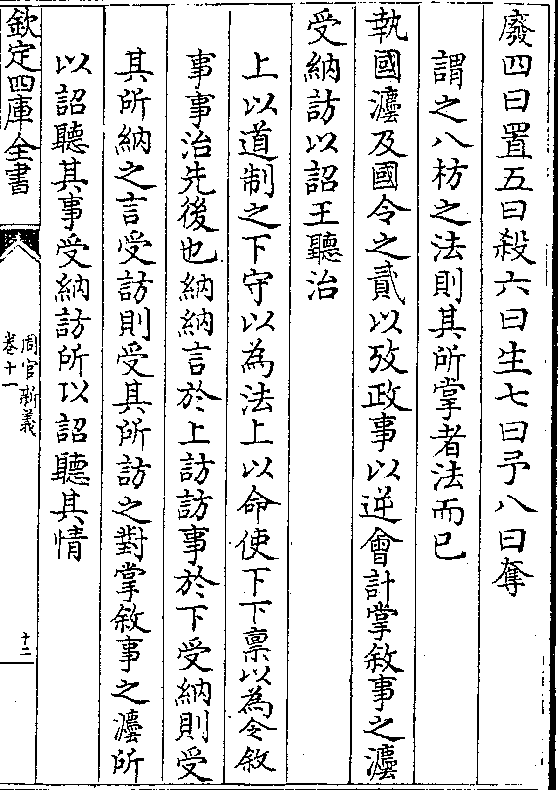 廢四曰置五曰殺六曰生七曰予八曰奪
謂之八枋之法則其所掌者法而已
執國灋及國令之貳以攷政事以逆會計掌敘事之灋
受納訪以詔王聽治
上以道制之下守以為法上以命使下下禀以為令敘
事事治先後也納納言於上訪訪事於下受納則受
其所納之言受訪則受其所訪之對掌敘事之灋所
以詔聽其事受納訪所以詔聽其情
欽定四庫全書
周官新義
卷十一
十二